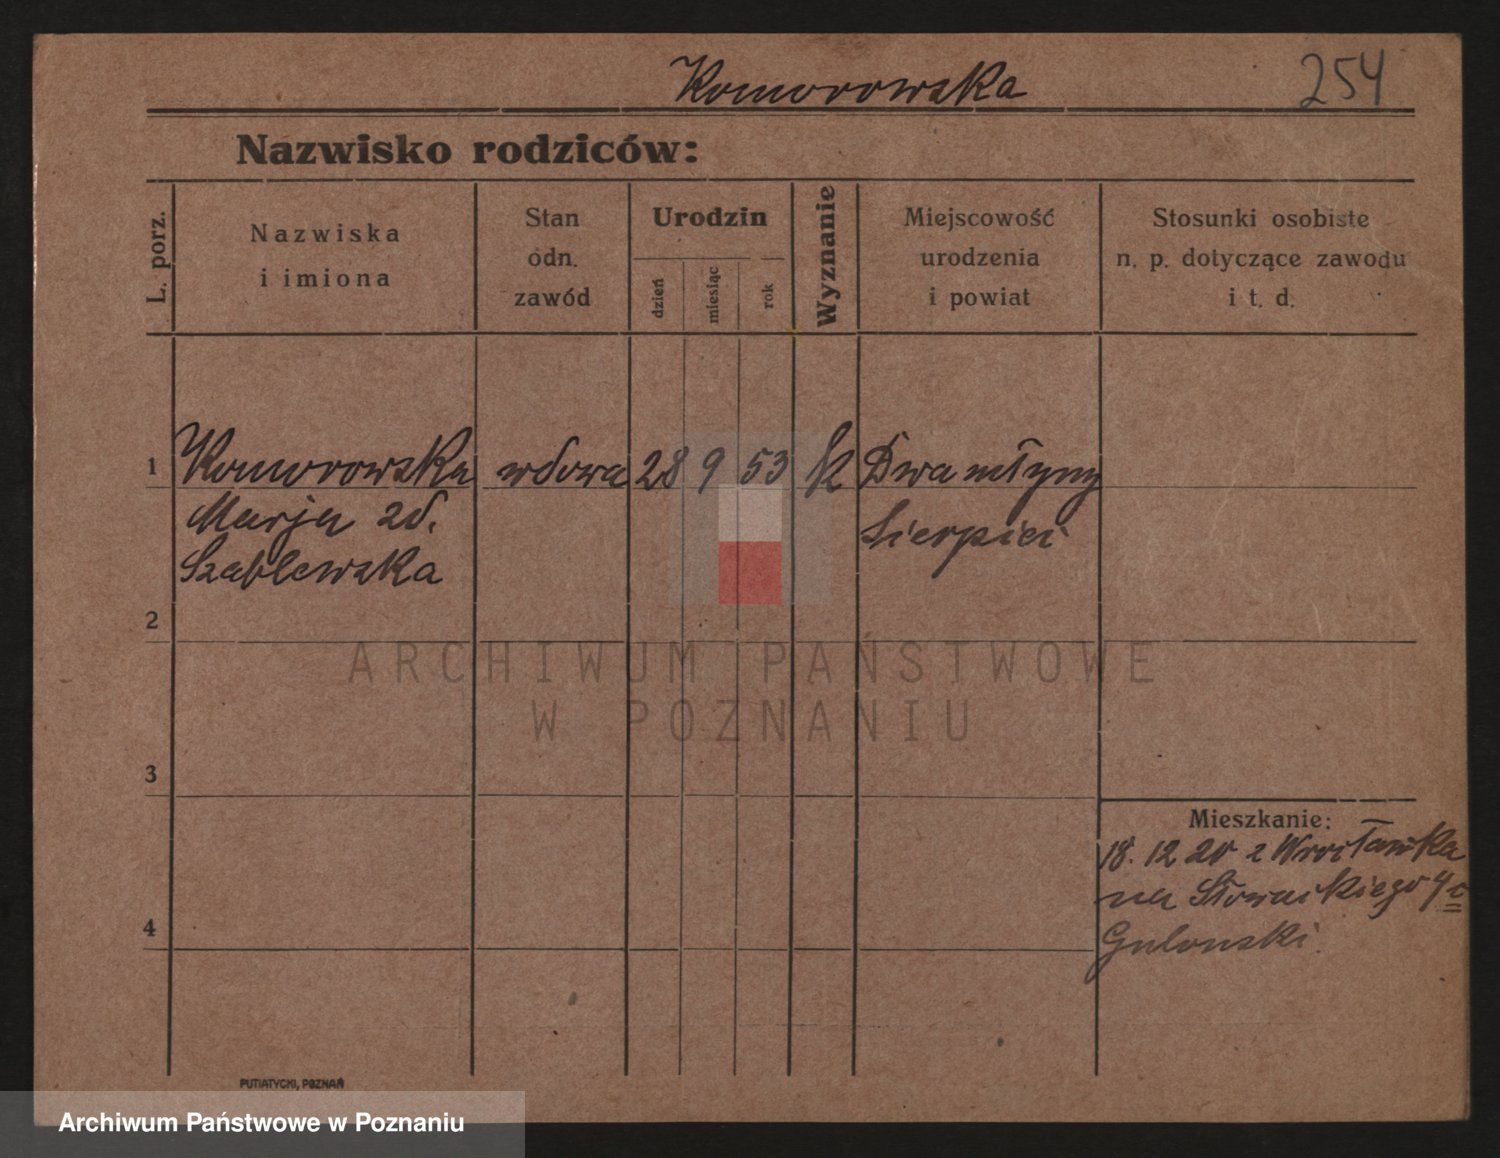 Komorowska
254
Nazwisko rodziców:
L. porz.
Nazwiska
i imiona
Stan
odn.
zawód
Urodzin
dzień
miesiąc
rok
Wyznanie
Miejscowość
urodzenia
i powiat
Stosunki osobiste
n. p. dotyczące zawodu
i t. d.
1 Komorowska wdowa 28 9 53 k Dwa młyny
Marja zd. Sierpici
Szablewska
2
ARCHIWUM PAŃSTWOWE
W POZNANIU
3
Mieszkanie:
18. 12 20 z Wrocławka
na Słowackiego 4
4
PUTIATYCKI, POZNAŃ
Archiwum Państwowe w Poznaniu